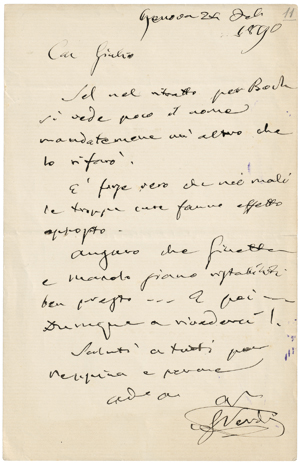 Genova 24 Dic
1890
11
Car Giulio
Se nel ritratto per Bach
si vede poco il nome
mandatemene un' altro che
lo rifarò.
E' forse vero che nei mali
le troppe cure fanno effetto
opposto.
Auguro che Ginetta
e Manolo siano ristabiliti
ben presto --- E poi --
Dunque a rivederci!..
Saluti a tutti per
Peppina e per me
G Verdi